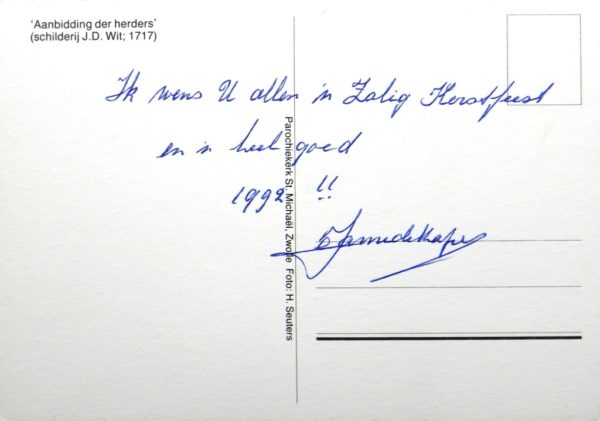 'Aanbidding der herders'
(schilderij J.D. Wit; 1717)
Ik wens U allen 'n Zalig Kerstfeest
en 'n heel goed
1992 !!
Parochiekerk St. Michaël, Zwolle Foto: H. Seuters